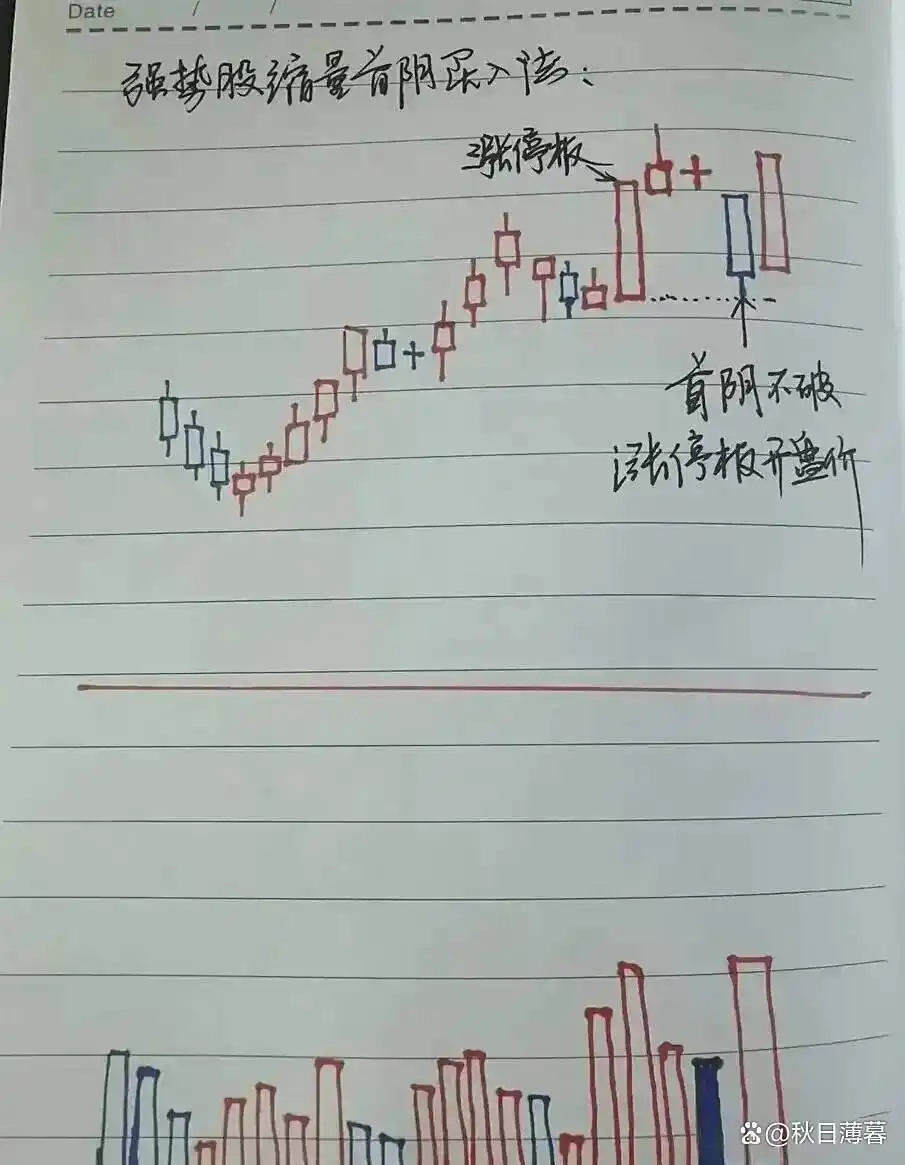 Date / /
强势股缩量首阴买入法:
涨停板
首阴不破
涨停板开盘价
@秋日薄暮